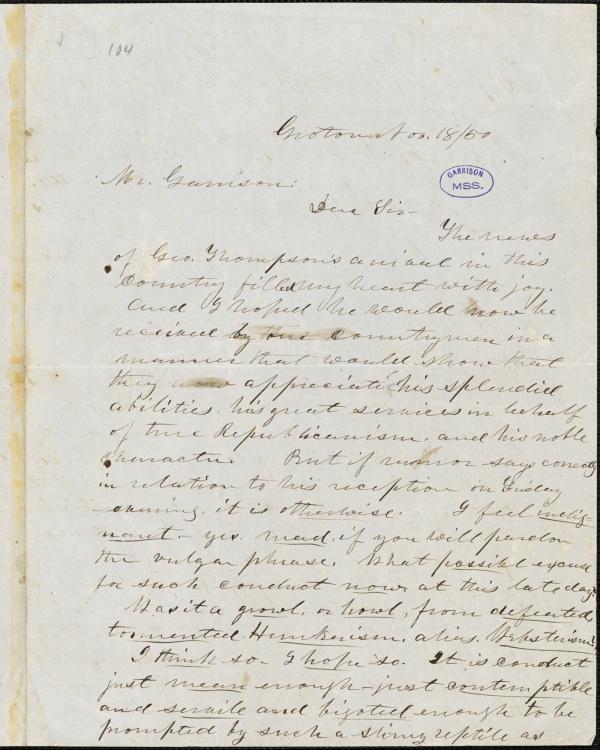 104
Groton Nov. 18/50
GARRISON
MSS.
Mr. Garrison:
Dear Sir
The news
of Geo. Thompson's arrival in this
Country filled my heart with joy.
And I hoped he would now be
received by this Countrymen in a
manner that would show that
they now appreciate his splendid
abilities, his great services in behalf
of true Republicanism, and his noble
character. But if rumor says correctly
in relation to his reception on Friday
evening, it is otherwise. I feel indig-
nant - yes, mad, if you will pardon
the vulgar phrase. What possibl excuse
for such conduct now, at this late day?
Was it a growl, or howl, from defeated,
tormented Hunkerism, alias, Websterism?
I think so - I hope so. It is conduct
just mean enough - just contemptible
and servile and bigoted enough to be
prompted by such a slimy reptile as